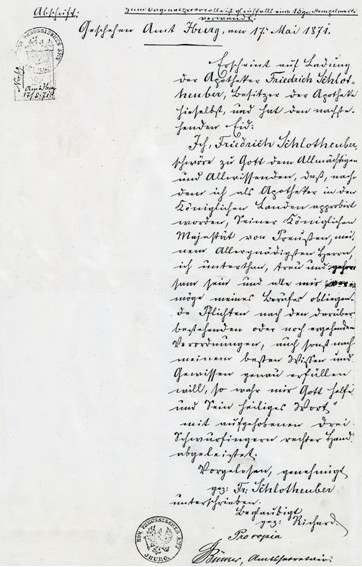 Abschrift.
zum Originalprotocoll ist
verwandt.
Geschehen Amt Iburg, am 17. Mai 1871.
Erscheint auf Ladung
der Apotheker Friedrich Schlot-
heuber, Besitzer der Apotheke
hieselbst, und hat den nachste-
henden Eid:
Ich, Friedrich Schlotheuber,
schwöre zu Gott dem Allmächtigen
und Allwissenden, daß, nach-
dem ich als Apotheker in den
Königlichen Landen approbirt
worden, Seiner Königlichen
Majestät von Preussen, mei-
nem Allergnädigsten Herrn,
ich unterthan, treu und gehor-
sam sein und alle mir ver-
möge meines Berufes obliegen-
de Pflichten nach den darüber
bestehenden oder noch ergehenden
Verordnungen, auch sonst nach
meinem besten Wissen und
Gewissen genau erfüllen
will, so wahr mir Gott helfe
und Sein heiliges Wort
mit aufgehobenen drei
Schwurfingern rechter Hand
abgeleistet.
Vorgelesen, genehmigt
gez. Fr. Schlotheuber
unterschrieben.
Beglaubigt
gez. Richard.
Pro copia
Amtssecretair.
IBURG.